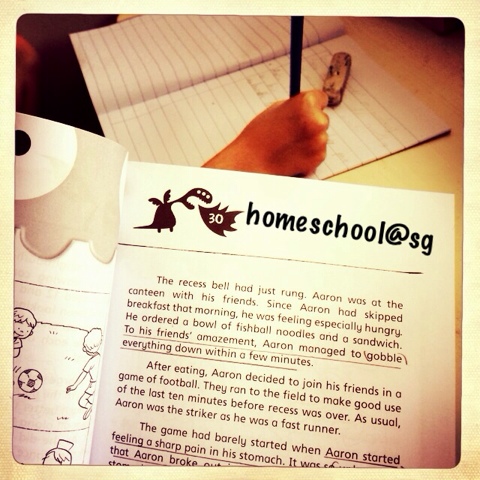 30
homeschool@sg
The recess bell had just rung. Aaron was at the
canteen with his friends. Since Aaron had skipped
breakfast that morning, he was feeling especially hungry.
He ordered a bowl of fishball noodles and a sandwich.
To his friends' amazement, Aaron managed to gobble
everything down within a few minutes.
After eating, Aaron decided to join his friends in a
game of football. They ran to the field to make good use
of the last ten minutes before recess was over. As usual,
Aaron was the striker as he was a fast runner.
The game had barely started when Aaron started
feeling a sharp pain in his stomach. It was
that Aaron broke out